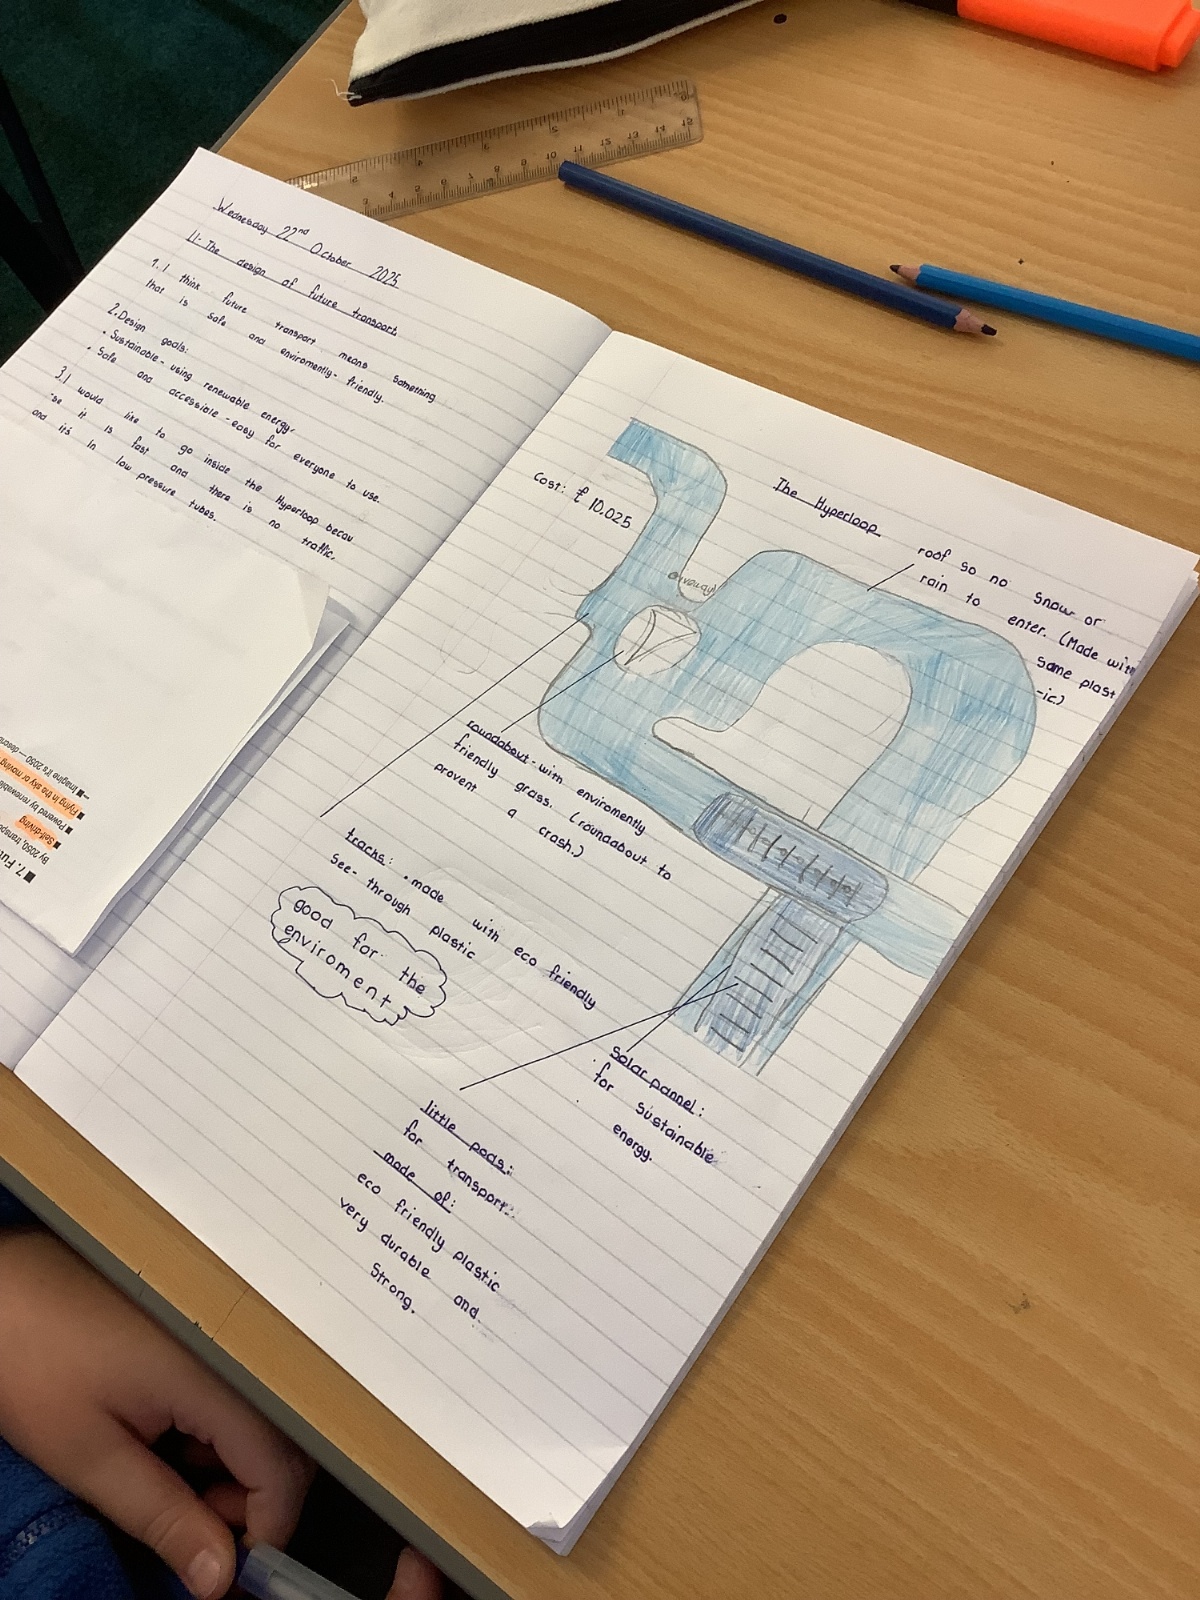 Wednesday 22nd October 2025
L1- The design of future transport
1. I think future transport means something
that is safe and enviromently- friendly.
2. Design goals:
• Sustainable- using renewable energy.
• Safe and accessible -easy for everyone to use.
3. I would like to go inside the Hyperloop becau
'se it is fast and there is no traffic.
and its in low pressure tubes.
The Hyperloop
Cost: £ 10.025
roof so no snow or
rain to enter. (Made with
same plast
-ic.)
roundabout- with enviromently
friendly grass. (roundabout to
prevent a crash.)
tracks: • made with eco friendly
see- through plastic
good for the
enviroment
Solar pannel:
for sustainable
energy.
little pods:
for transport.
made of:
eco friendly plastic
very durable and
strong.
■ 7. Fut
By 2050, transpo
■ Self-driving
■ Powered by renewable
■ Flying in the sky or moving
Imagine it's 2050